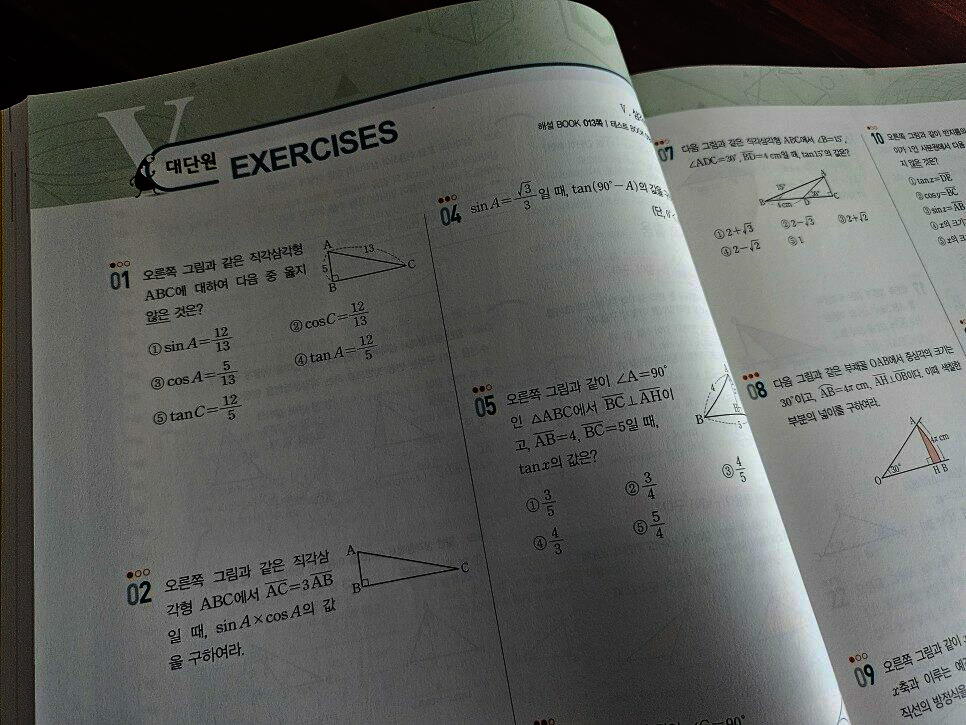 V
대단원 EXERCISES
V. 삼
해설 BOOK 013쪽 | 테스트 BOOK
01 오른쪽 그림과 같은 직각삼각형
ABC에 대하여 다음 중 옳지
않은 것은?
A 13 5 B C
① sin A=12/13 ② cos C=12/13
③ cos A=5/13 ④ tan A=12/5
⑤ tan C=12/5
02 오른쪽 그림과 같은 직각삼
각형 ABC에서 AC=3AB
일 때, sin A×cos A의 값
을 구하여라.
A B C
04 sin A=√3/3일 때, tan(90°-A)의 값을
(단, 0°<
05 오른쪽 그림과 같이 ∠A=90°
인 △ABC에서 BC⊥AH이
고, AB=4, BC=5일 때,
tan x의 값은?
A 4 B H 5
① 3/5 ② 3/4 ③ 4/5
④ 4/3 ⑤ 5/4
∠C=90°
07 다음 그림과 같은 직각삼각형 ABC에서 ∠B=15°,
∠ADC=30°, BD=4 cm일 때, tan 15°의 값은?
A 15° 30° B 4 cm D C
① 2+√3 ② 2-√3 ③ 2+√2
④ 2-√2 ⑤ 1
08 다음 그림과 같은 부채꼴 OAB에서 중심각의 크기는
30°이고, AB=4π cm, AH⊥OB이다. 이때 색칠한
부분의 넓이를 구하여라.
A 4π cm 30° O H B
09 오른쪽 그림과 같이
x축과 이루는 예
직선의 방정식을
10 오른쪽 그림과 같이 반지름의
이가 1인 사분원에서 다음
지 않은 것은?
① tan x=DE
② cos y=BC
③ sin z=AB
④ x의 크기
⑤ x의 크